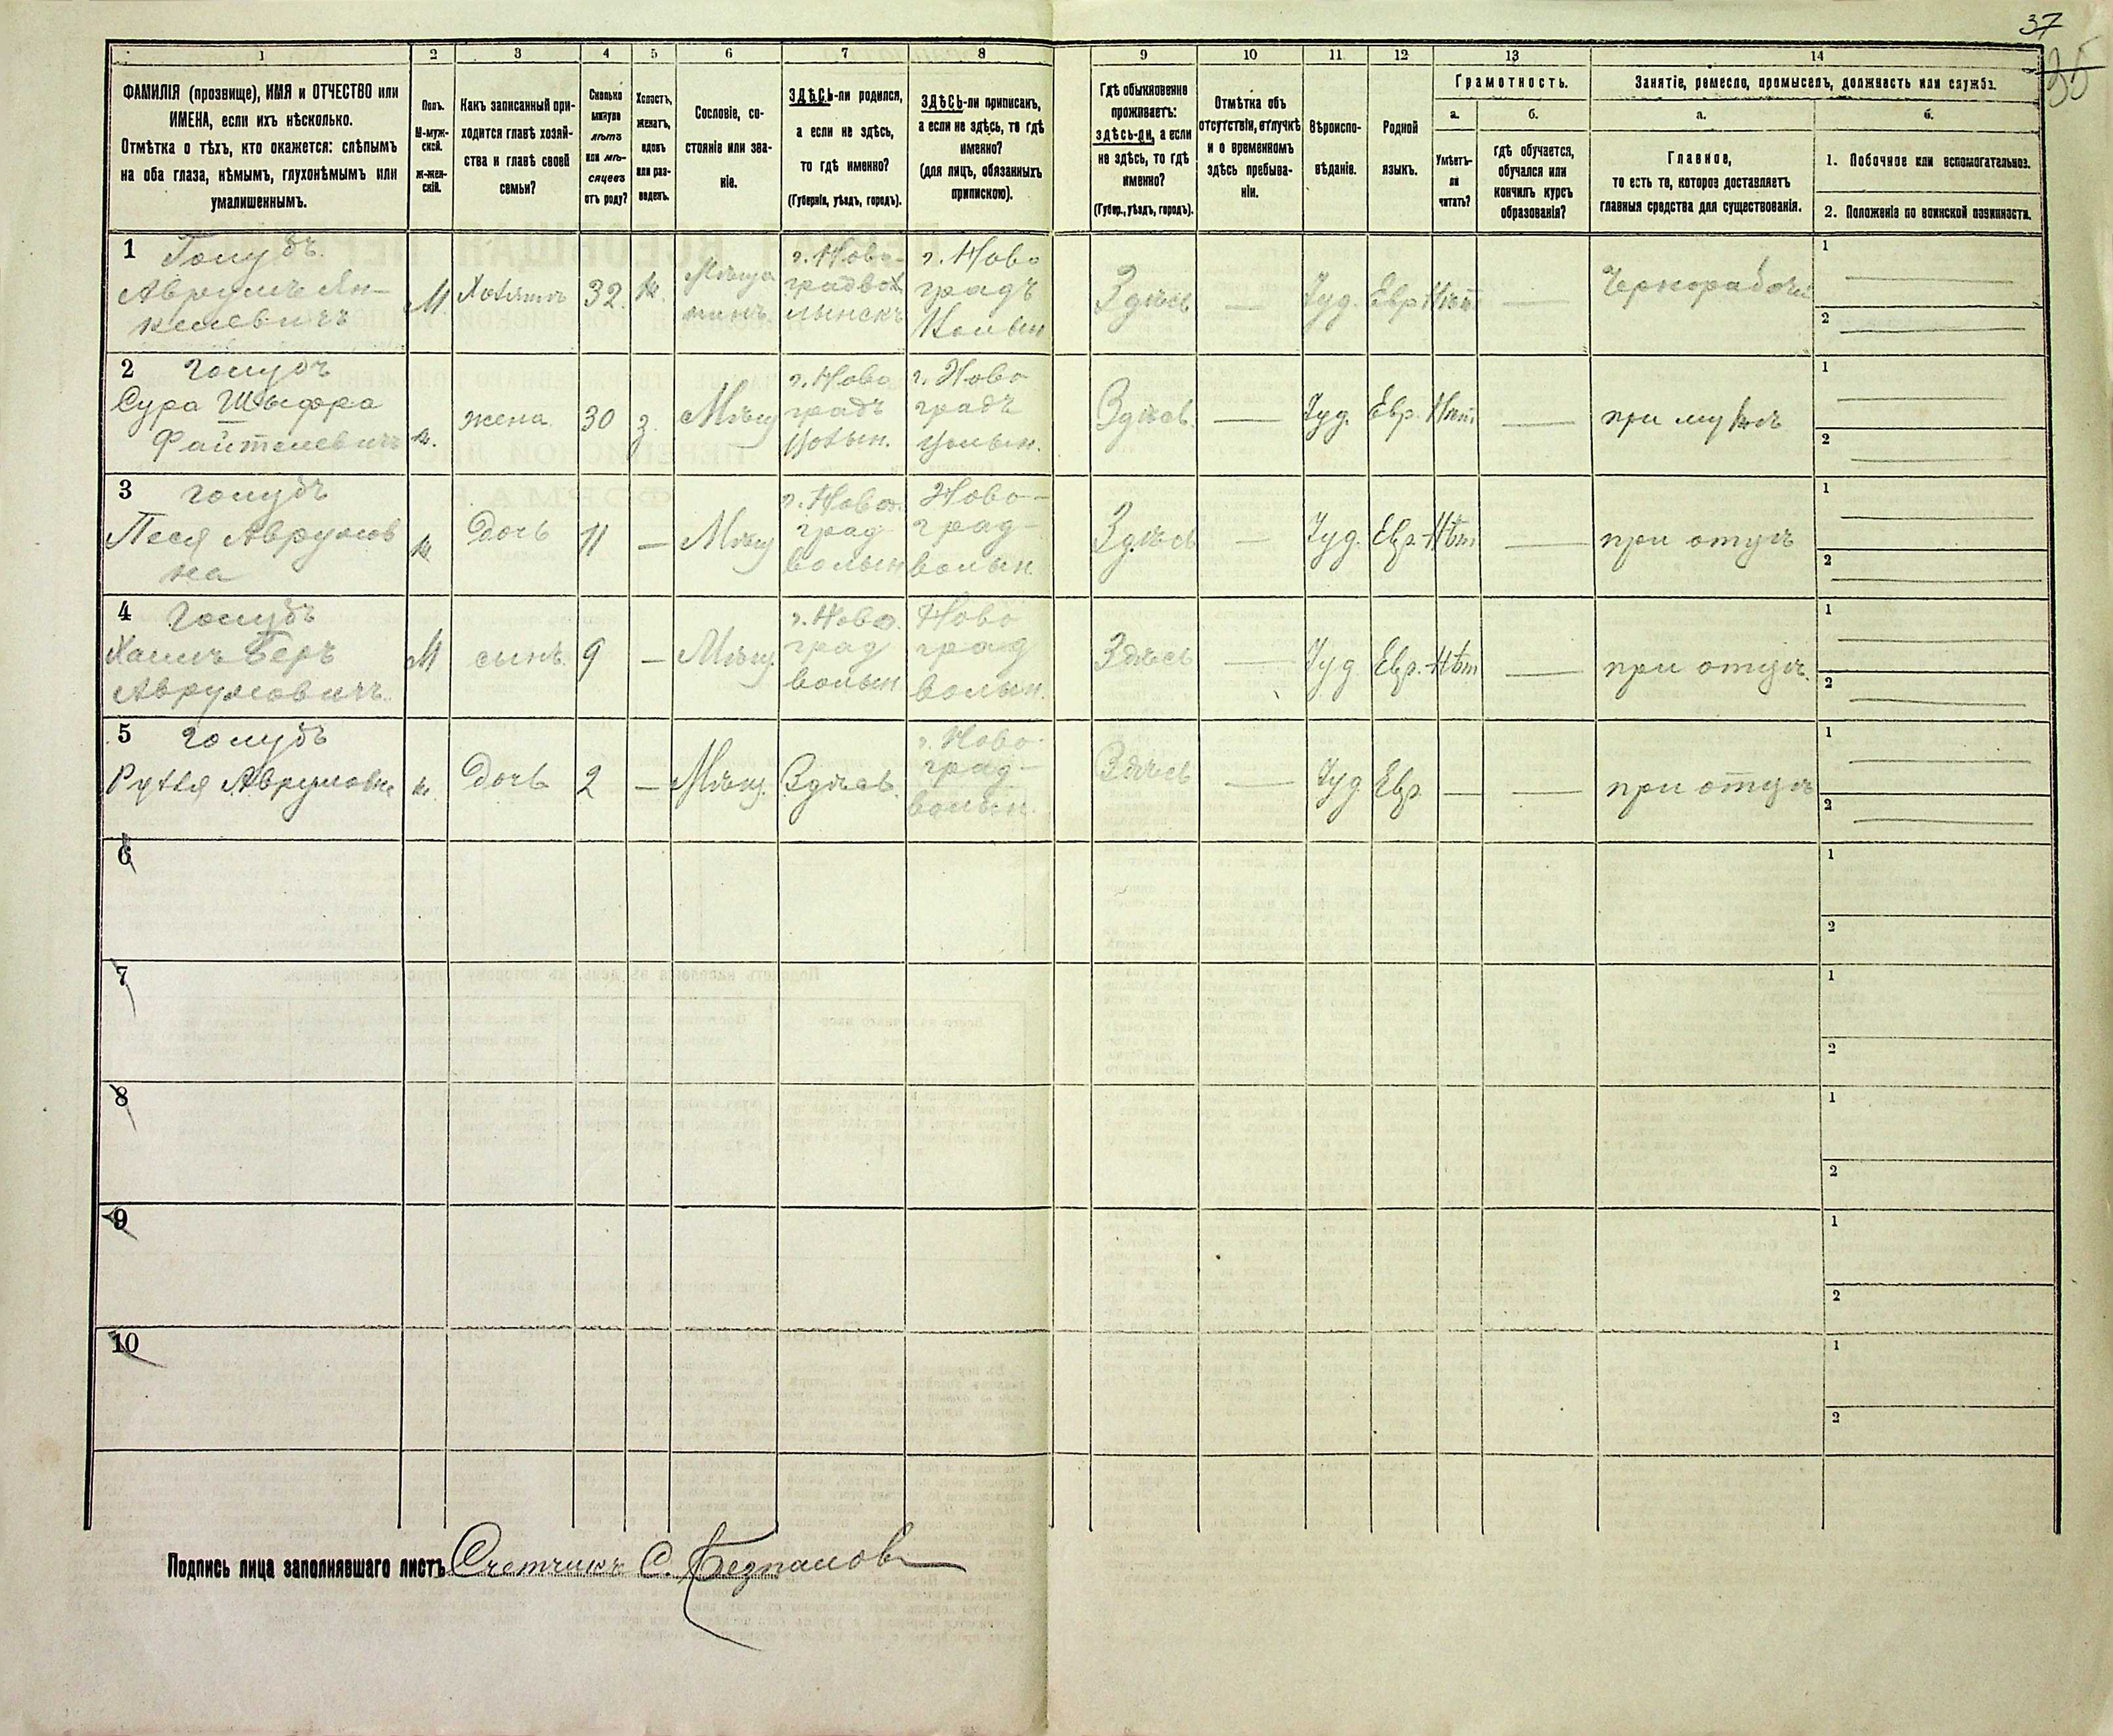 37
35
1
2
3
4
5
6
7
8
9
10
11
12
13
14
ФАМИЛІЯ (прозвище), ИМЯ и ОТЧЕСТВО или
ИМЕНА, если ихъ нѣсколько.
Отмѣтка о тѣхъ, кто окажется: слѣпымъ
на оба глаза, нѣмымъ, глухонѣмымъ или
умалишеннымъ.
Полъ.
М-муж-
ской.
Ж-жен-
скій.
Какъ записанный при-
ходится главѣ хозяй-
ства и главѣ своей
семьи?
Сколько
минуло
лѣтъ
или мѣ-
сяцевъ
отъ роду?
Холостъ,
женатъ,
вдовъ
или раз-
веденъ.
Сословіе, со-
стояніе или зва-
ніе.
ЗДѢСЬ-ли родился,
а если не здѣсь,
то гдѣ именно?
(Губернія, уѣздъ, городъ).
ЗДѢСЬ-ли приписанъ,
а если не здѣсь, то гдѣ
именно?
(для лицъ, обязанныхъ
припискою).
Гдѣ обыкновенно
проживаетъ:
здѣсь-ли, а если
не здѣсь, то гдѣ
именно?
(Губер., уѣздъ, городъ).
Отмѣтка объ
отсутствіи, отлучкѣ
и о временномъ
здѣсь пребыва-
ніи.
Вѣроиспо-
вѣданіе.
Родной
языкъ.
Грамотность.
а.
Умѣетъ-
ли
читать?
б.
гдѣ обучается,
обучался или
кончилъ курсъ
образованія?
Занятіе, ремесло, промыселъ, должность или служба.
а.
Главное,
то есть то, которое доставляетъ
главныя средства для существованія.
б.
1. Побочное или вспомогательное.
2. Положеніе по воинской повинности.
1 Голубъ.
Аврумъ Ян-
келевичъ
М.
Хозяинъ
32.
ж.
Мѣща
нинъ.
г. Ново-
градвол
лынскъ
г. Ново
градъ
Волын
Здѣсь
—
Іуд.
Евр.
Нѣт
—
Чернорабочій
1 —
2 —
2 Голубъ
Сура Шифра
Файтелевичъ
ж.
жена
30
з.
Мѣщ
г. Ново
градъ
Волын.
г. Ново
градъ
Волын.
Здѣсь.
—
Іуд.
Евр.
Нѣт.
—
при мужѣ
1 —
2 —
3 Голубъ
Песя Аврумов
на
ж
Дочь
11
—
Мѣщ
г. Ново.
град
волын
Ново-
град-
волын.
Здѣсь
—
Іуд.
Евр.
Нѣт
—
при отцѣ
1 —
2 —
4 Голубъ
Хаимъ Беръ
Аврумовичъ.
М
сынъ.
9
—
Мѣщ.
г. Ново.
град
волын
Ново
град
волын.
Здѣсь
—
Іуд
Евр.
Нѣт
—
при отцѣ.
1 —
2 —
5 Голубъ
Аврумовна
ж.
Дочь
2
—
Мѣщ.
Здѣсь.
г. Ново-
град-
волын.
Здѣсь
—
Іуд
Евр.
—
—
при отцѣ
1 —
2 —
6
1
2
7
1
2
8
1
2
9
1
2
10
1
2
Подпись лица заполнявшаго листъ Счетчикъ С.